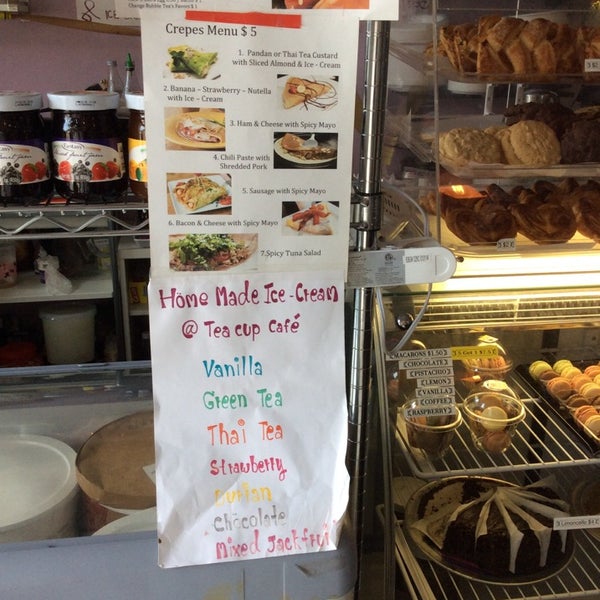 Change Bubble Tea's Favors $ 1
Crepes Menu $ 5
1. Pandan or Thai Tea Custard
with Sliced Almond & Ice - Cream
2. Banana – Strawberry – Nutella
with Ice - Cream
3. Ham & Cheese with Spicy Mayo
4. Chili Paste with
Shredded Pork
5. Sausage with Spicy Mayo
6. Bacon & Cheese with Spicy Mayo
7.Spicy Tuna Salad
Home Made Ice-Cream
@ Tea cup Café
Vanilla
Green Tea
Thai Tea
Strawberry
Durian
Chocolate
Mixed Jackfrui
MACARONS $1.50
CHOCOLATE
PISTACHIO
LEMON
VANILLA
COFFEE
RASPBERRY